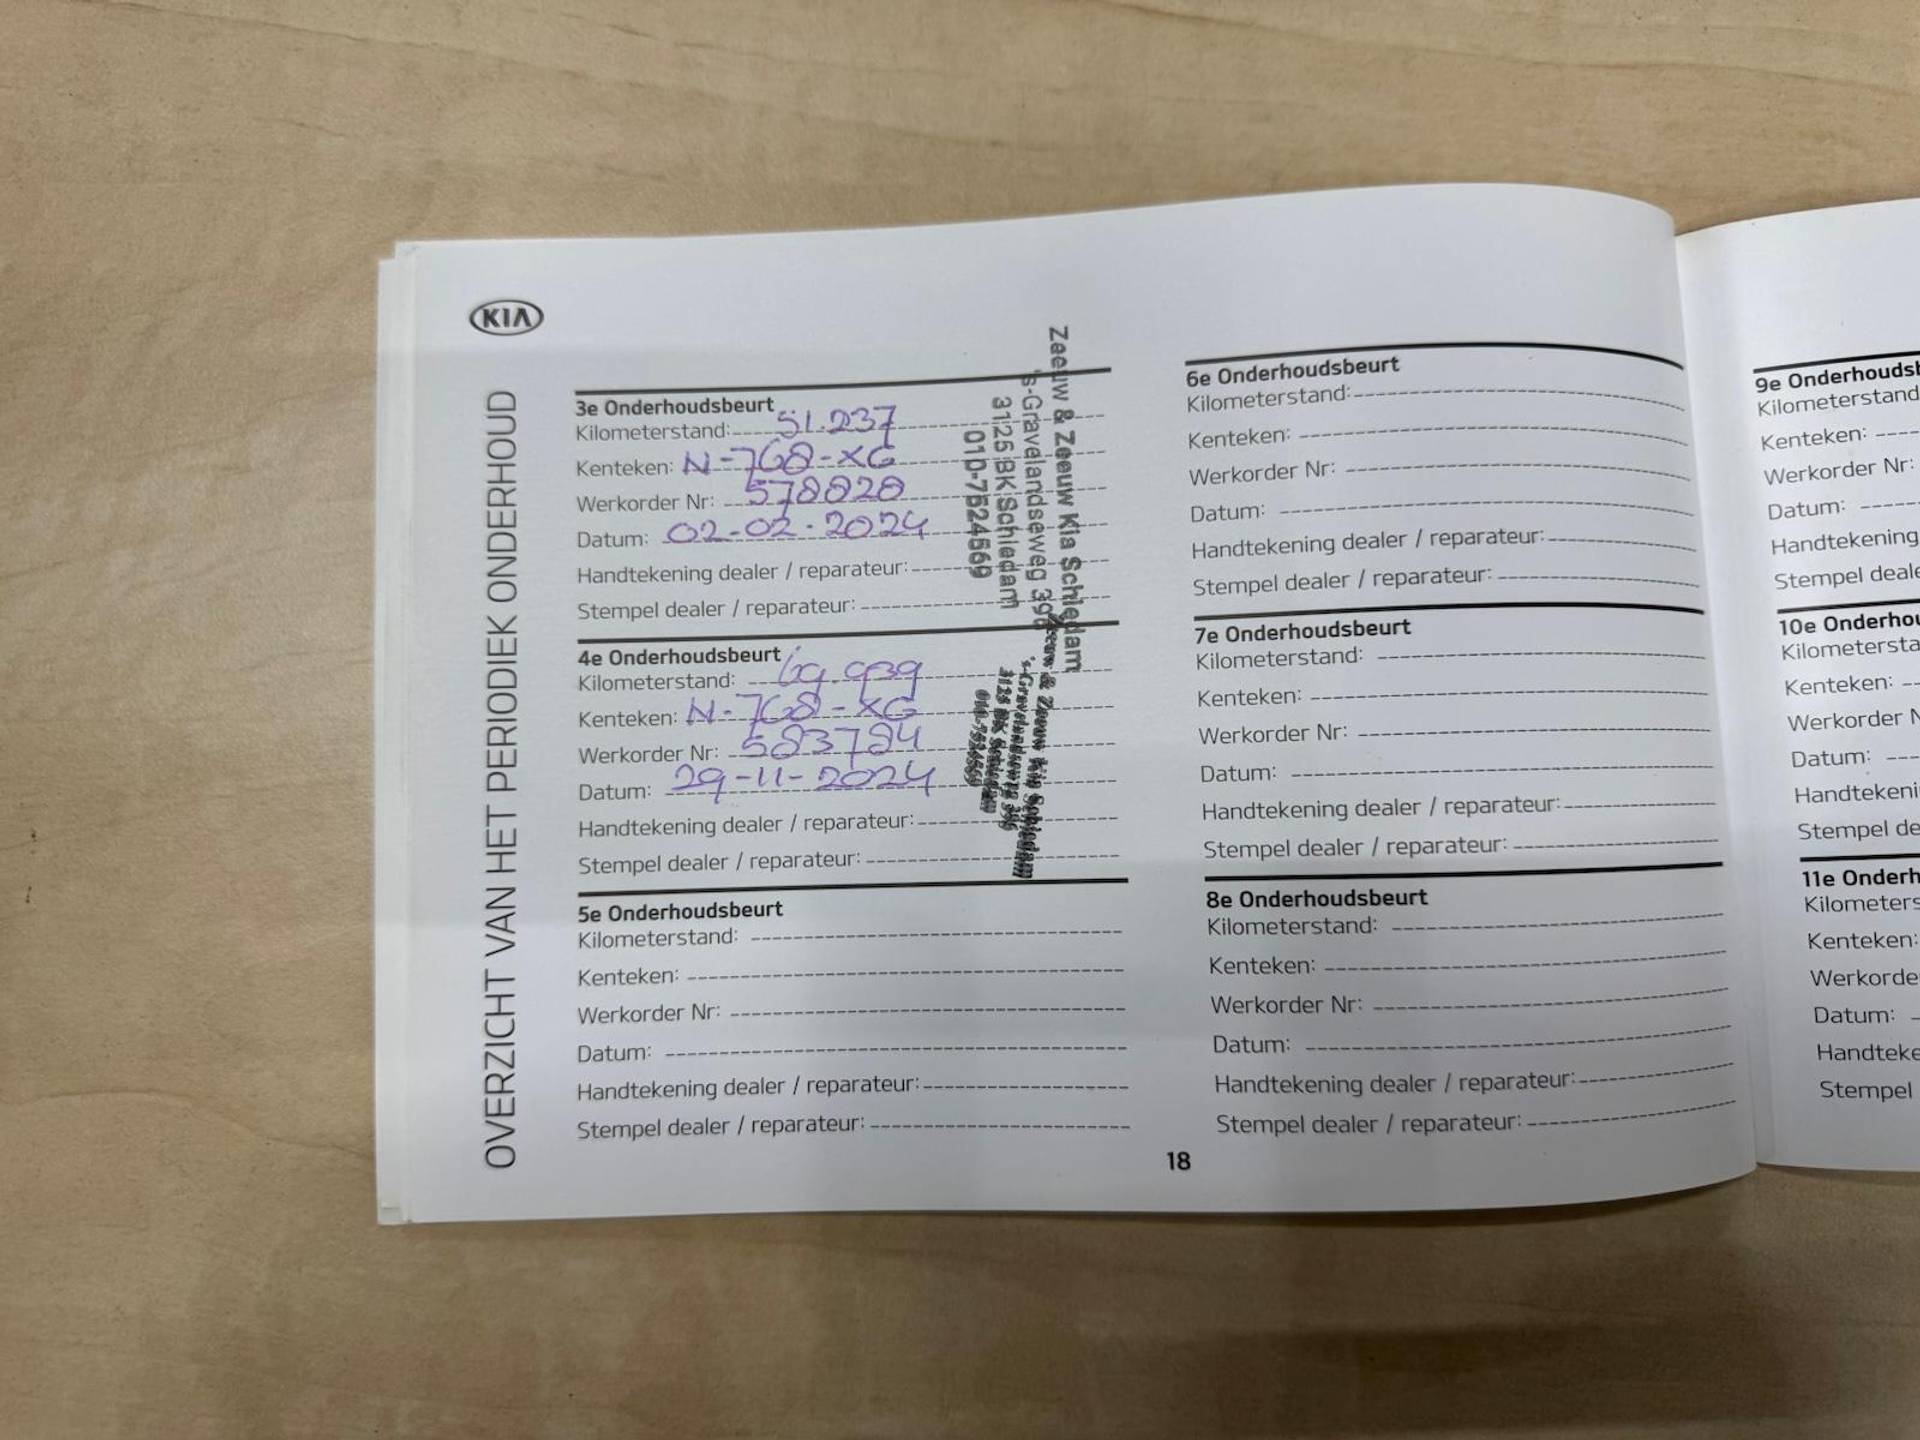 KIA
OVERZICHT VAN HET PERIODIEK ONDERHOUD
3e Onderhoudsbeurt
Kilometerstand: 51.237
Kenteken: N-768-XG
Werkorder Nr: 578828
Datum: 02-02-2024
Handtekening dealer / reparateur:
Stempel dealer / reparateur:
Zeeuw & Zeeuw Kia Schiedam
's-Gravelandseweg 396
3125 BK Schiedam
010-7524569
4e Onderhoudsbeurt
Kilometerstand: 69.939
Kenteken: N-768-XG
Werkorder Nr: 583784
Datum: 29-11-2024
Handtekening dealer / reparateur:
Stempel dealer / reparateur:
Zeeuw & Zeeuw Kia Schiedam
's-Gravelandseweg 396
3125 BK Schiedam
010-7524569
5e Onderhoudsbeurt
Kilometerstand:
Kenteken:
Werkorder Nr:
Datum:
Handtekening dealer / reparateur:
Stempel dealer / reparateur:
6e Onderhoudsbeurt
Kilometerstand:
Kenteken:
Werkorder Nr:
Datum:
Handtekening dealer / reparateur:
Stempel dealer / reparateur:
7e Onderhoudsbeurt
Kilometerstand:
Kenteken:
Werkorder Nr:
Datum:
Handtekening dealer / reparateur:
Stempel dealer / reparateur:
8e Onderhoudsbeurt
Kilometerstand:
Kenteken:
Werkorder Nr:
Datum:
Handtekening dealer / reparateur:
Stempel dealer / reparateur:
18
9e Onderhouds
Kilometerstand
Kenteken:
Werkorder Nr:
Datum:
Handtekening
Stempel deale
10e Onderhou
Kilometersta
Kenteken:
Werkorder N
Datum:
Handtekeni
Stempel de
11e Onderh
Kilometers
Kenteken:
Werkorde
Datum:
Handteke
Stempel